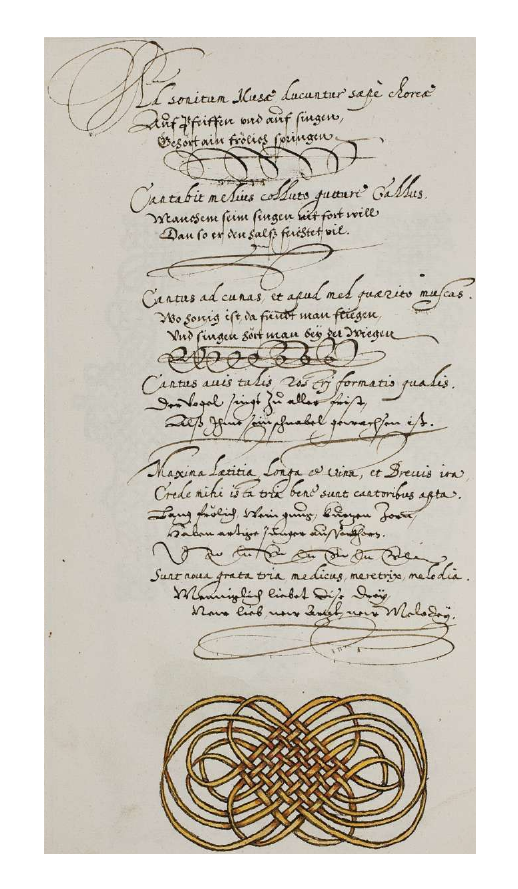 Ad sonitum Musæ ducuntur sæpè choreæ
Auf Pfeiffen vnd auf singen,
Gehört ain frölichs springen.
Cantabit melius colluto gutture Gallus.
Manchem seim singen nit fort will
Dan so er den halß feichtet vil.
Cantus ad cunas, et apud mel quærito muscas.
Wo honig ist, da findt man fliegen,
Vnd singen hört man bey der Wiegen
Cantus auis talis, formatio qualis.
Der Vogel singt zu aller frist,
Alß Ihme sein schnabel gewachsen ist.
Maxima Lætitia, Longa vina, et Breuis ira,
Crede mihi ista tria bene sunt cantoribus apta.
Lang frölich, Wein gnug, kurzen Zorn,
Haben artige Singer
Sunt noua grata tria medicus, meretrix, melodia.
Menniglich liebet dise drey,
New lieb new Arzt, new Melodey.